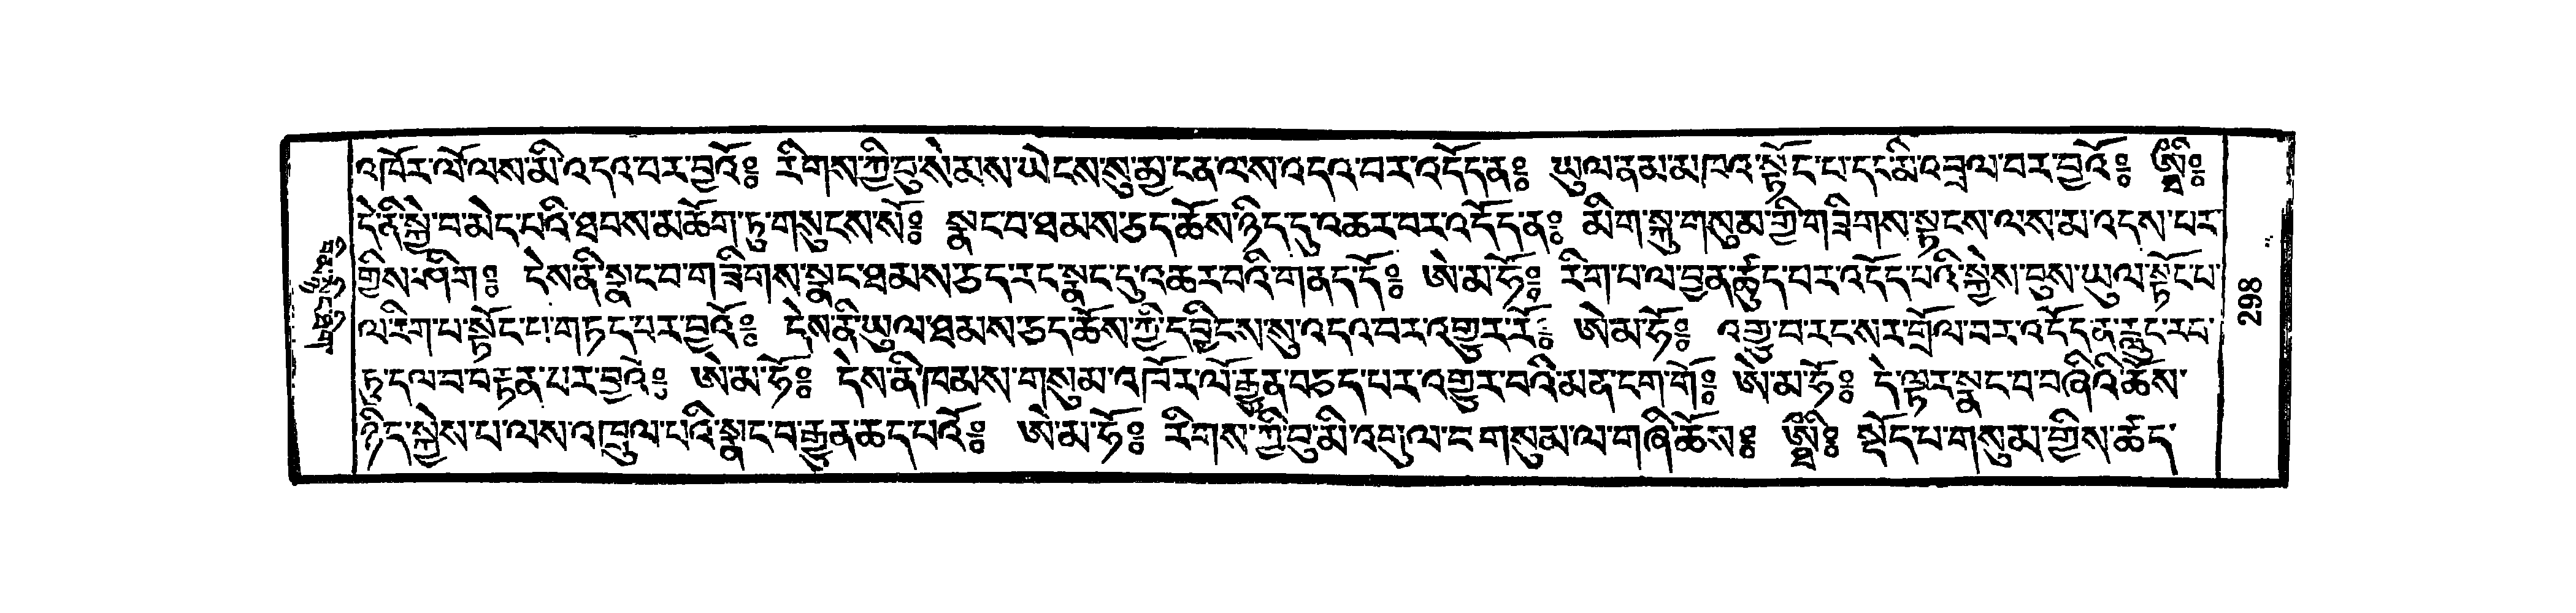 འཁོར་ལོ་ལས་མི་འདའ་བར་བྱའོ༔ རིགས་ཀྱི་བུ་སེམས་ཡེངས་སུ་མྱ་ངན་ལས་འདའ་བར་འདོད་ན༔ ཡུལ་ནམ་མཁའ་སྟོང་པ་དང་མི་འབྲལ་བར་བྱའོ༔ ཨྠྀ༔
དེ་ནི་སྐྱེ་བ་མེད་པའི་ཐབས་མཆོག་ཏུ་གསུངས་སོ༔ སྣང་བ་ཐམས་ཅད་ཆོས་ཉིད་དུ་འཆར་བར་འདོད་ན༔ མིག་སྐུ་གསུམ་གྱི་གཟིགས་སྟངས་ལས་མ་འདས་པར་
གྱིས་ཤིག༔ དེས་ནི་སྣང་བ་གཟིགས་སྣང་ཐམས་ཅད་རང་སྣང་དུ་འཆར་བའི་གནད་དོ༔ ཨེ་མ་ཧོ༔ རིག་པ་ལ་བྱན་ཚུད་པར་འདོད་པའི་སྐྱེས་བུས་ཡུལ་སྟོང་པ་
ལ་རིག་པ་སྟོང་པ་གཏད་པར་བྱའོ༔ དེས་ནི་ཡུལ་ཐམས་ཅད་ཆོས་ཀྱི་དབྱིངས་སུ་འདའ་བར་འགྱུར་རོ༔ ཨེ་མ་ཧོ༔ འགྱུ་བ་རང་སར་གྲོལ་བར་འདོད་ན་རླུང་རབ་
ཏུ་དལ་བ་བརྟན་པར་བྱའོ༔ ཨེ་མ་ཧོ༔ དེས་ནི་ཁམས་གསུམ་འཁོར་ལོ་རྒྱུན་བཅད་པར་འགྱུར་བའི་མན་ངག་གོ༔ ཨེ་མ་ཧོ༔ དེ་ལྟར་སྣང་བ་བཞིའི་ཆོས་
ཉིད་སྐྱེས་པ་ལས་འཁྲུལ་པའི་སྣང་བ་རྒྱུན་ཆད་པའོ༔ ཨེ་མ་ཧོ༔ རིགས་ཀྱི་བུ་མི་འགུལ་བ་གསུམ་ལ་གཞི་ཆོས༔ ཨྠྀ༔ སྡོད་པ་གསུམ་གྱིས་ཚད་